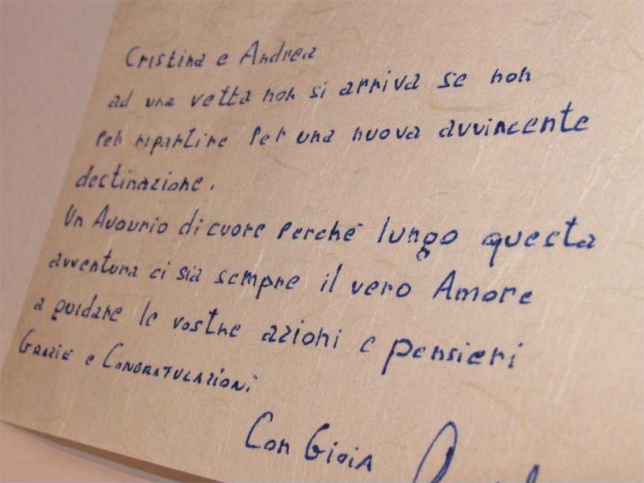 Cristina e Andrea
ad una vetta non si arriva se non
per ripartire per una nuova avvincente
destinazione.
Un Augurio di cuore perché lungo questa
avventura ci sia sempre il vero Amore
a guidare le vostre azioni e pensieri
Grazie e Congratulazioni
Con Gioia